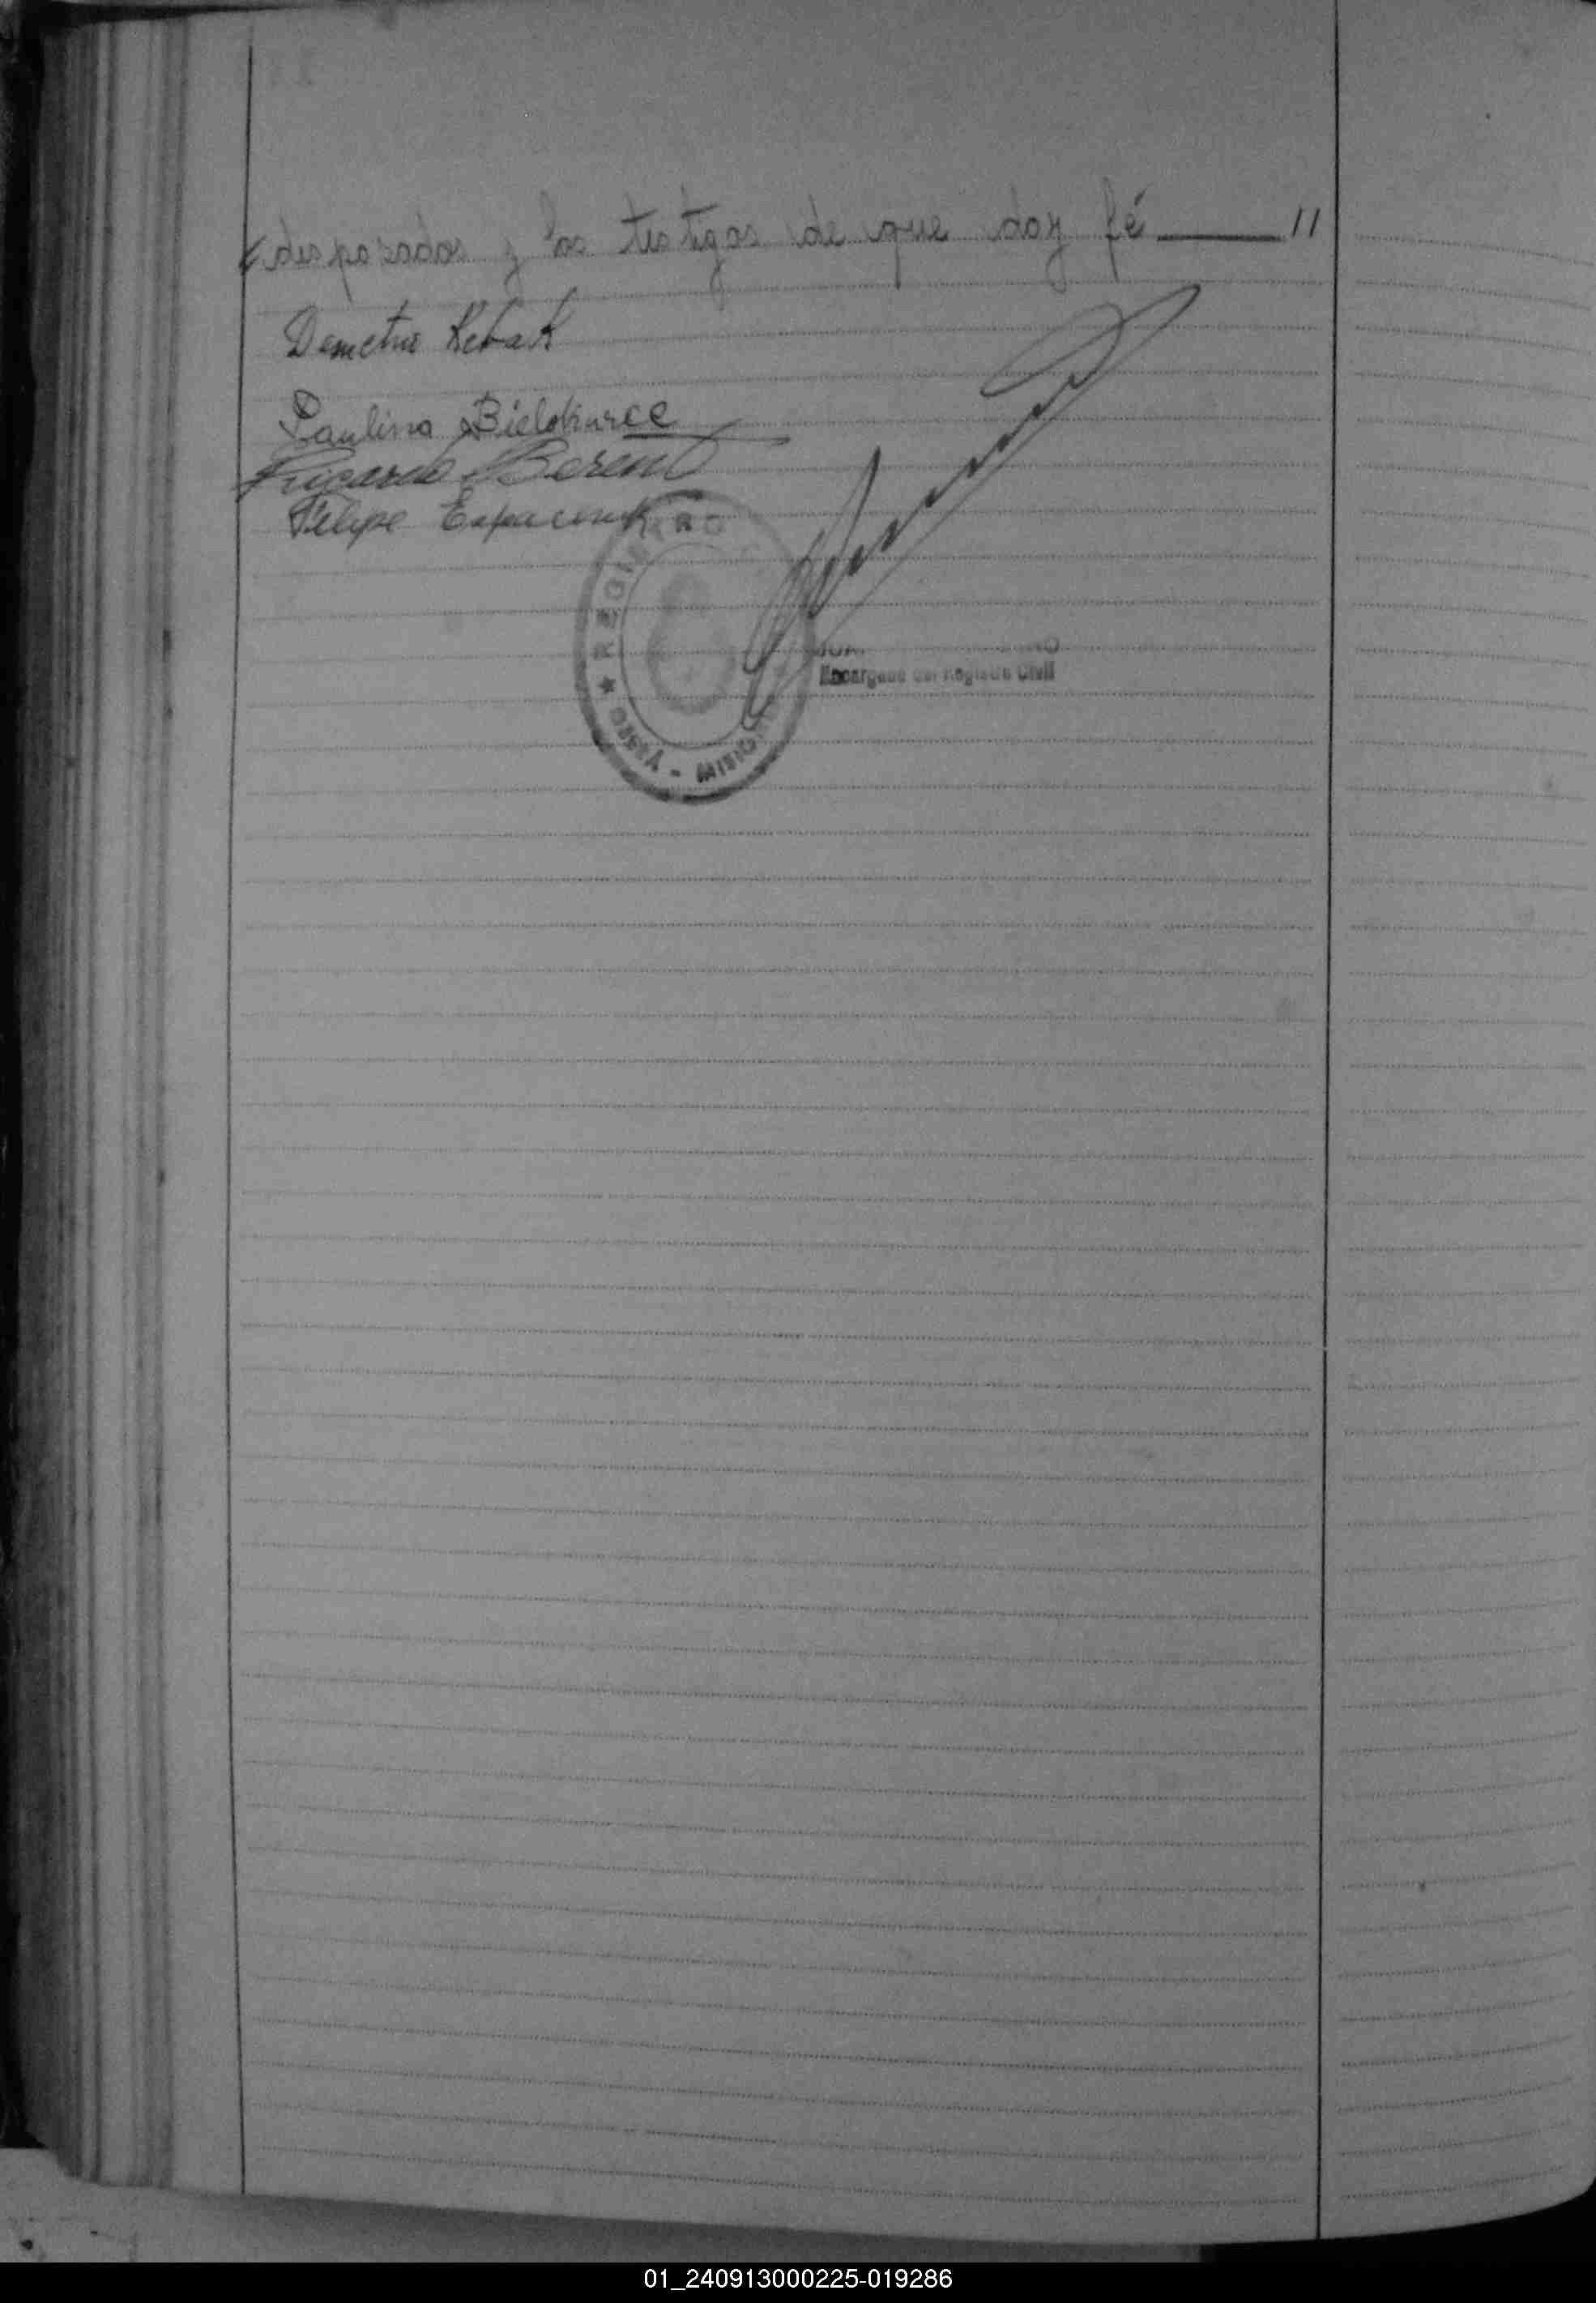 desposados y los testigos de que doy fé ———— //
Demetrio Rebak
Paulina
Ricardo Berent
Felipe
REGISTRO
★ OBERÁ - MISIONES
Encargado del Registro Civil
01_240913000225-019286